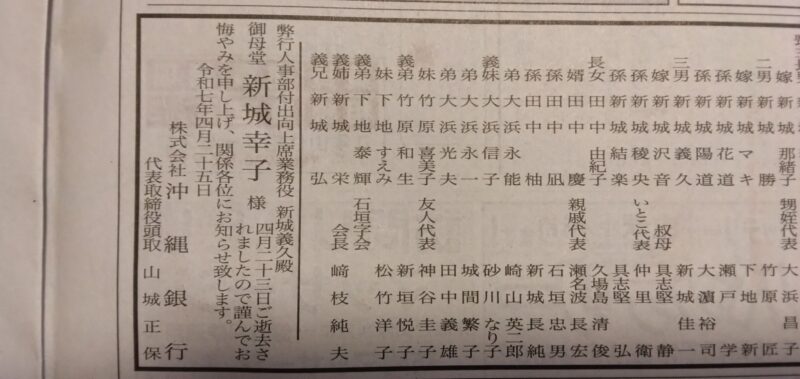 嫁 新城 那緒子
二男 新城 勝
嫁 新城 マキ
孫 新城 花道
孫 新城 陽道
三男 新城 義久
嫁 新城 沢音
孫 新城 稜央
孫 新城 結楽
長女 田中 由紀子
婿 田中 慶
孫 田中 凪
孫 田中 柚
弟 大浜 永能
義妹 大浜 信子
弟 大浜 永一
弟 大浜 光夫
妹 竹原 喜美子
義弟 竹原 和生
妹 下地 すえみ
義弟 下地 泰輝
義姉 新城 栄
義兄 新城 弘
甥姪代表 大浜 昌子
竹原 匠
下地 新
瀬戸 学
大濵 裕司
新城 佳一
叔母 具志堅 静
いとこ代表 仲里 衛
具志堅 弘
久場島 清俊
親戚代表 瀬名波 長宏
石垣 忠男
新城 長純
崎山 英二郎
砂川 なり子
城間 繁子
田中 義雄
友人代表 神谷 圭子
新垣 悦子
松竹 洋子
石垣字会
会長 﨑枝 純夫
弊行人事部付出向上席業務役 新城義久殿
御母堂 新城幸子 様 四月二十三日ご逝去されましたので謹んでお
悔やみを申し上げ、関係各位にお知らせ致します。
令和七年四月二十五日
株式会社 沖縄銀行
代表取締役頭取 山城正保